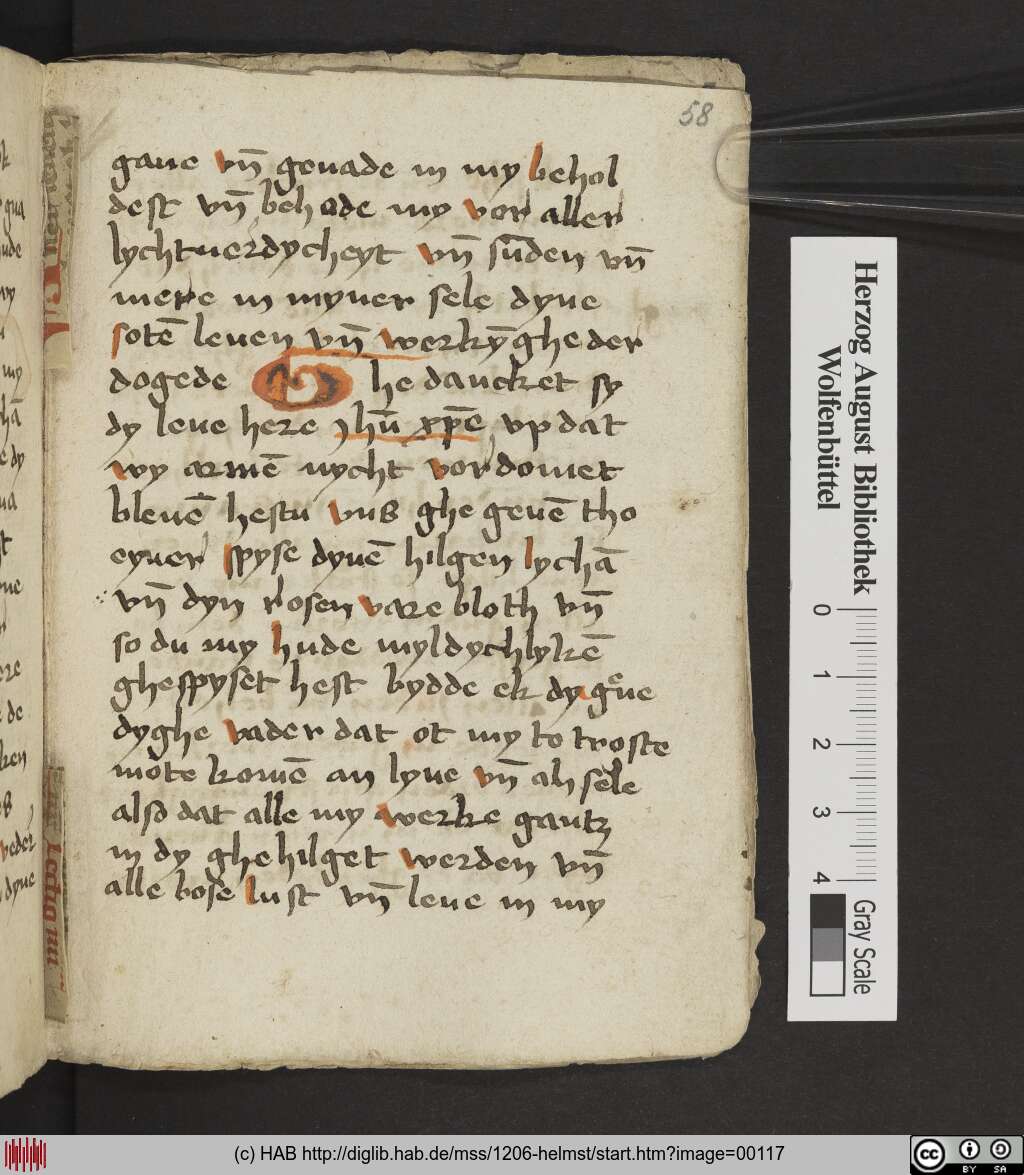 58
gaue vn̄ genade in my behol
dest vn̄ behode my vor aller
lychtuerdycheyt vn̄ sūden vn̄
mere in myner sele dyne
sotē leuen vn̄ werkȳghe der
dogede Ghe dancket sy
dy leue here ihū xp̄e vp dat
wy armē nycht vordomet
bleuē hestu vns ghe geuē tho
eyner spyse dynē hilgen lychā
vn̄ dyn rosen vare bloth vn̄
so du my hude myldychlykē
ghespyset hest bydde ek dy
dyghe vader dat ot my to troste
mote komē an lyue vn̄ an sele
also dat alle my werke gantz
in dy ghehilget werden vn̄
alle bose lust vn̄ leue in my
Herzog August Bibliothek
Wolfenbüttel
0 1 2 3 4
Gray Scale
(c) HAB http://diglib.hab.de/mss/1206-helmst/start.htm?image=00117
cc BY SA